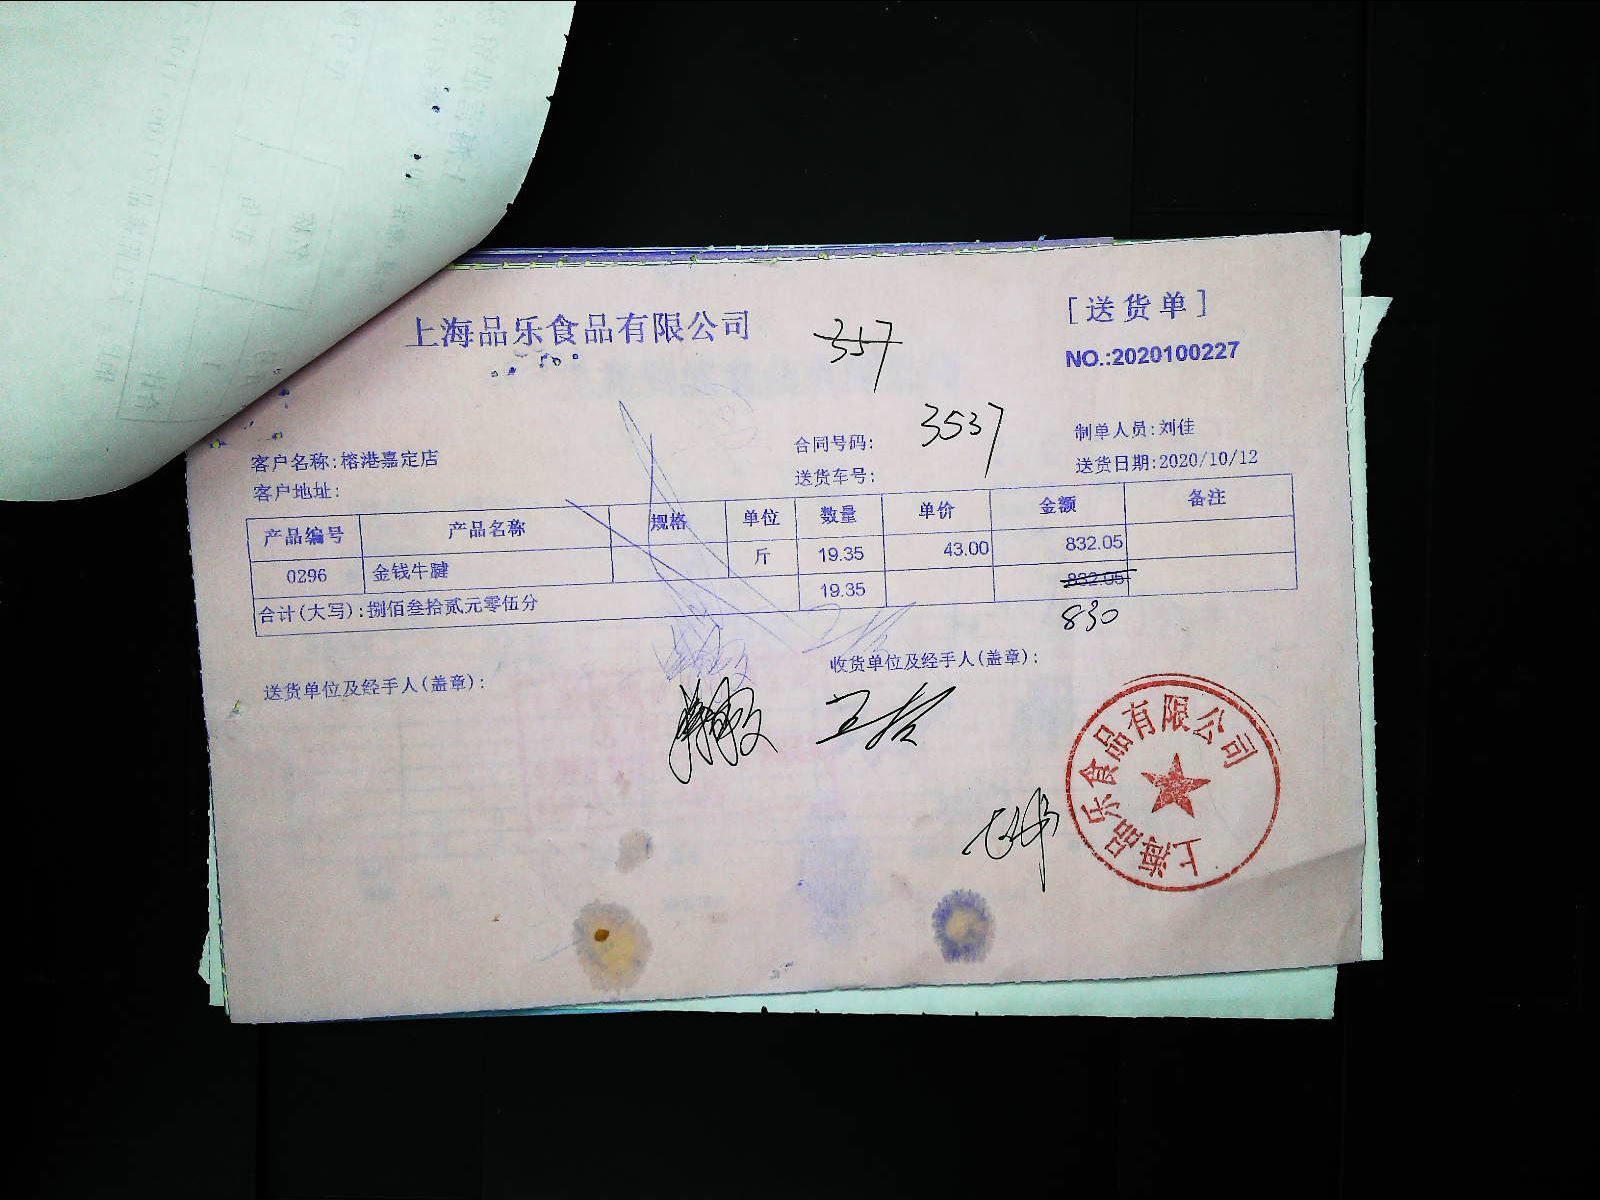 上海品乐食品有限公司
357
[送货单]
NO.:2020100227
客户名称:榕港嘉定店
合同号码:
3537
制单人员:刘佳
客户地址:
送货车号:
送货日期:2020/10/12
产品编号 产品名称 规格 单位 数量 单价 金额 备注
0296 金钱牛腱 斤 19.35 43.00 832.05
合计(大写):捌佰叁拾贰元零伍分 19.35 832.05
830
送货单位及经手人(盖章):
收货单位及经手人(盖章):
上海品乐食品有限公司